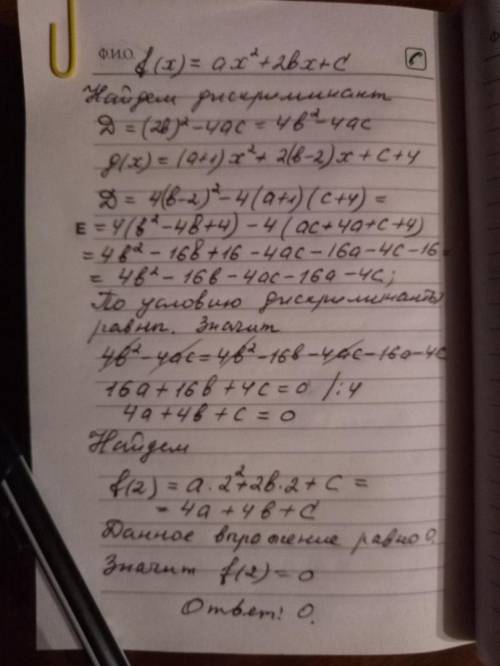 Ф.И.О. f(x) = ax² + 2bx + c
Найдем дискриминант
D = (2b)² - 4ac = 4b² - 4ac
g(x) = (a+1)x² + 2(b-2)x + c + 4
D = 4(b-2)² - 4(a+1)(c+4) =
E = 4(b² - 4b + 4) - 4(ac + 4a + c + 4)
= 4b² - 16b + 16 - 4ac - 16a - 4c - 16 =
= 4b² - 16b - 4ac - 16a - 4c;
По условию дискриминанты
равны. Значит
4b² - 4ac = 4b² - 16b - 4ac - 16a - 4c
16a + 16b + 4c = 0 /:4
4a + 4b + c = 0
Найдем
f(2) = a·2² + 2b·2 + c =
= 4a + 4b + c
Данное выражение равно 0.
Значит f(2) = 0
Ответ: 0.